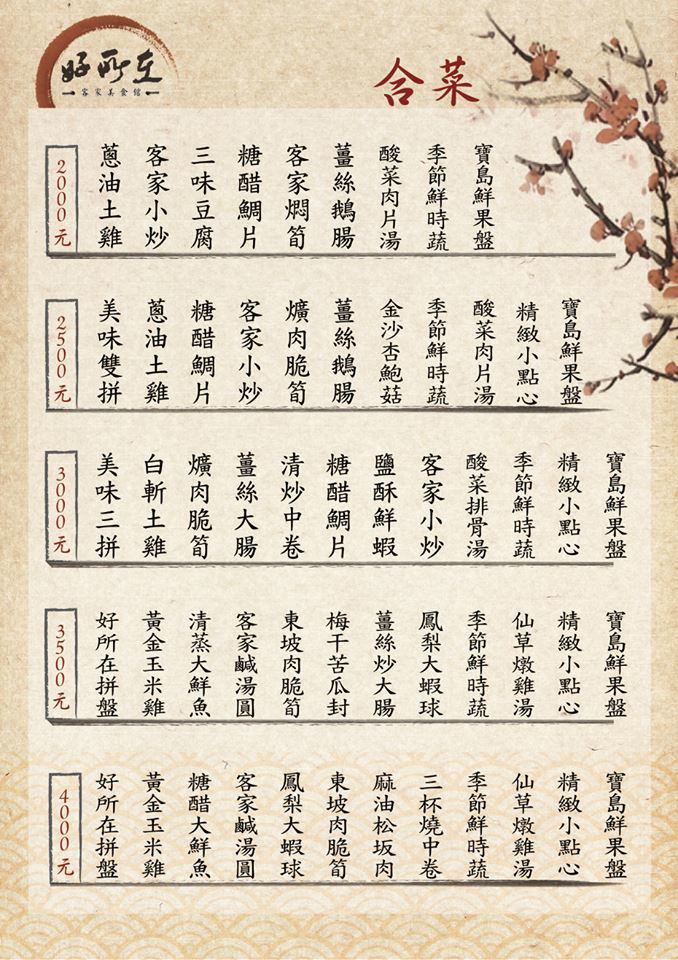 好所在
客家美食館
合菜
2000元
蔥油土雞
客家小炒
三味豆腐
糖醋鯛片
客家燜筍
薑絲鵝腸
酸菜肉片湯
季節鮮時蔬
寶島鮮果盤
2500元
美味雙拼
蔥油土雞
糖醋鯛片
客家小炒
爌肉脆筍
薑絲鵝腸
金沙杏鮑菇
季節鮮時蔬
酸菜肉片湯
精緻小點心
寶島鮮果盤
3000元
美味三拼
白斬土雞
爌肉脆筍
薑絲大腸
清炒中卷
糖醋鯛片
鹽酥鮮蝦
客家小炒
酸菜排骨湯
季節鮮時蔬
精緻小點心
寶島鮮果盤
3500元
好所在拼盤
黃金玉米雞
清蒸大鮮魚
客家鹹湯圓
東坡肉脆筍
梅干苦瓜封
薑絲炒大腸
鳳梨大蝦球
季節鮮時蔬
仙草燉雞湯
精緻小點心
寶島鮮果盤
4000元
好所在拼盤
黃金玉米雞
糖醋大鮮魚
客家鹹湯圓
鳳梨大蝦球
東坡肉脆筍
麻油松坂肉
三杯燒中卷
季節鮮時蔬
仙草燉雞湯
精緻小點心
寶島鮮果盤